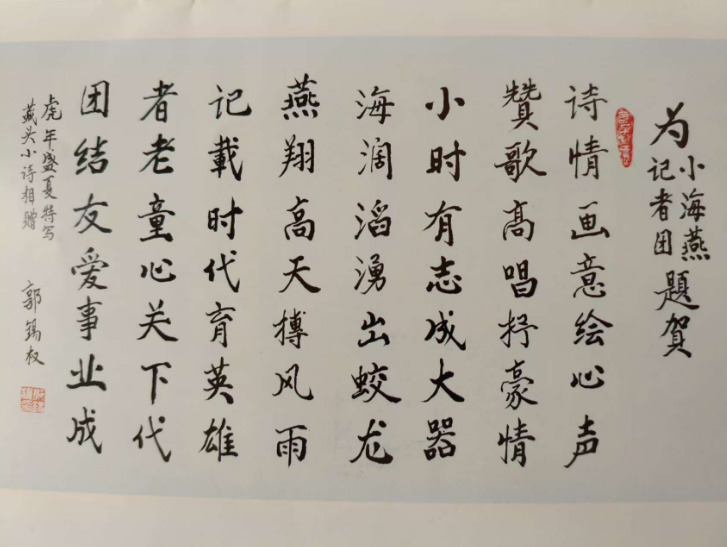 为小海燕记者团题贺
诗情画意绘心声
赞歌高唱抒豪情
小时有志成大器
海阔滔湧出蛟龙
燕翔高天搏风雨
记载时代育英雄
者老童心关下代
团结友爱事业成
虎年盛夏特写
藏头小诗相赠
郭锡权